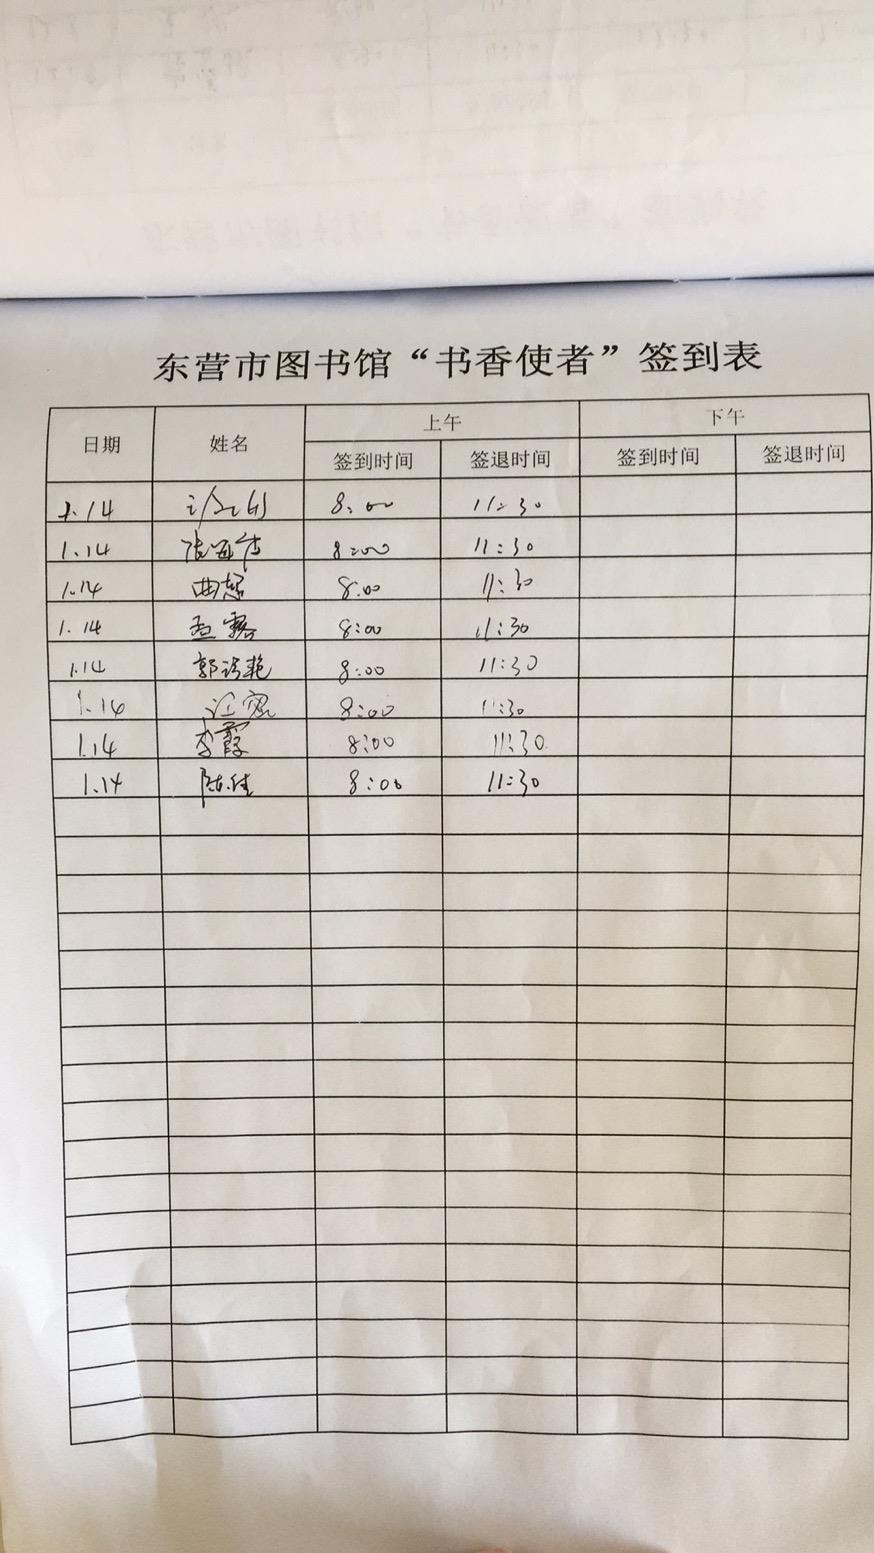 东营市图书馆“书香使者”签到表
日期 姓名 上午 下午
签到时间 签退时间 签到时间 签退时间
1.14 8:00 11:30
1.14 8:00 11:30
1.14 曲慧 8:00 11:30
1.14 孟露 8:00 11:30
1.14 8:00 11:30
1.14 8:00 11:30
1.14 李霞 8:00 11:30
1.14 陈佳 8:00 11:30